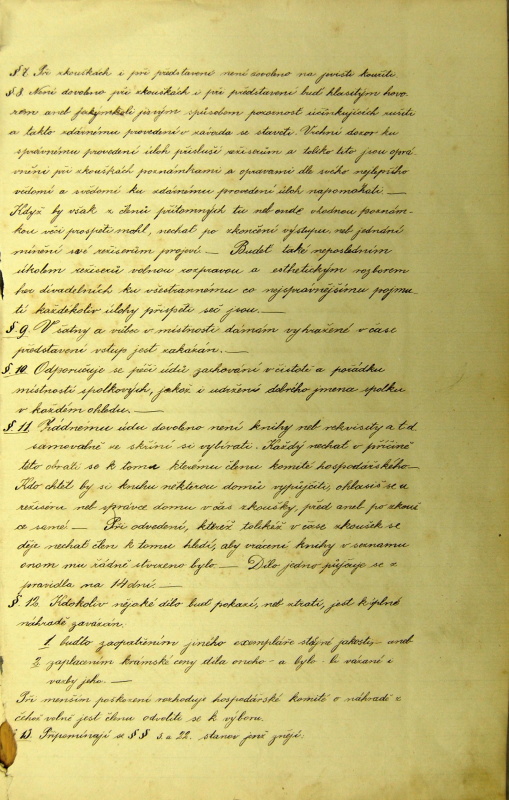 § 7. Při zkouškách i při představení není dovoleno na jevišti kouřiti.
§ 8. Není dovoleno při zkouškách i při představení buď hlasitým hovo-
rem aneb jakýmkoli jiným způsobem pozornost účinkujících rušiti
a takto zdárnému provedení v závadu se stavěti. Vrchní dozor ku
správnému provedení úloh přísluší režiserům a toliko tito jsou oprá-
vněni při zkouškách poznámkami a opravami dle svého nejlepšího
vědomí a svědomí ku zdárnému provedení úloh napomáhati. —
Když by však z členů přítomných tu neb onde vhodnou poznám-
kou věci prospěti mohl, nechať po skončení výstupu neb jednání
mínění své režiserům projeví. — Budiž také neposledním
úkolem režiserů volnou rozpravou a esthetickým rozborem
her divadelních ku všestrannému co nejsprávnějšímu pojmu-
tí každékoliv úlohy přispěti seč jsou. —
§ 9. V šatny a vůbec v místnosti dámám vyhražené v čase
představení vstup jest zakázán. —
§ 10. Odporučuje se péči údů zachování v čistotě a pořádku
místností spolkových, jakož i udržení dobrého jmena spolku
v každém ohledu. —
§ 11. Žádnému údu dovoleno není knihy neb rekvisity a t.d.
samovolně ze skříní si vybírati. Každý nechať v příčině
této obrátí se k tomu kterému členu komité hospodářského —
Kdo chtěl by si knihu některou domů vypůjčiti, ohlásiž se u
režiséru neb správce domu v čas zkoušky, před aneb po zkouš
ce samé — Při odvedení, kteréž tolikéž v čase zkoušek se
děje nechať člen k tomu hledí, aby vrácení knihy v seznamu
onom mu řádně stvrzeno bylo — Dílo jedno půjčuje se z
pravidla na 14 dní —
§. 12. Kdokoliv nějaké dílo buď pokazí, neb ztratí, jest k úplné
náhradě zavázán.
1. buďto zaopatřením jiného exempláře stejné jakosty — aneb
2. zaplacením krámské ceny díla onoho — a bylo-li vázané i
vazby jeho. —
Při menším poškození rozhoduje hospodářské komité o náhradě z
čehož volno jest členu odvolati se k výboru.
13. Připomínají se §§ a 22. stanov jenž znějí: